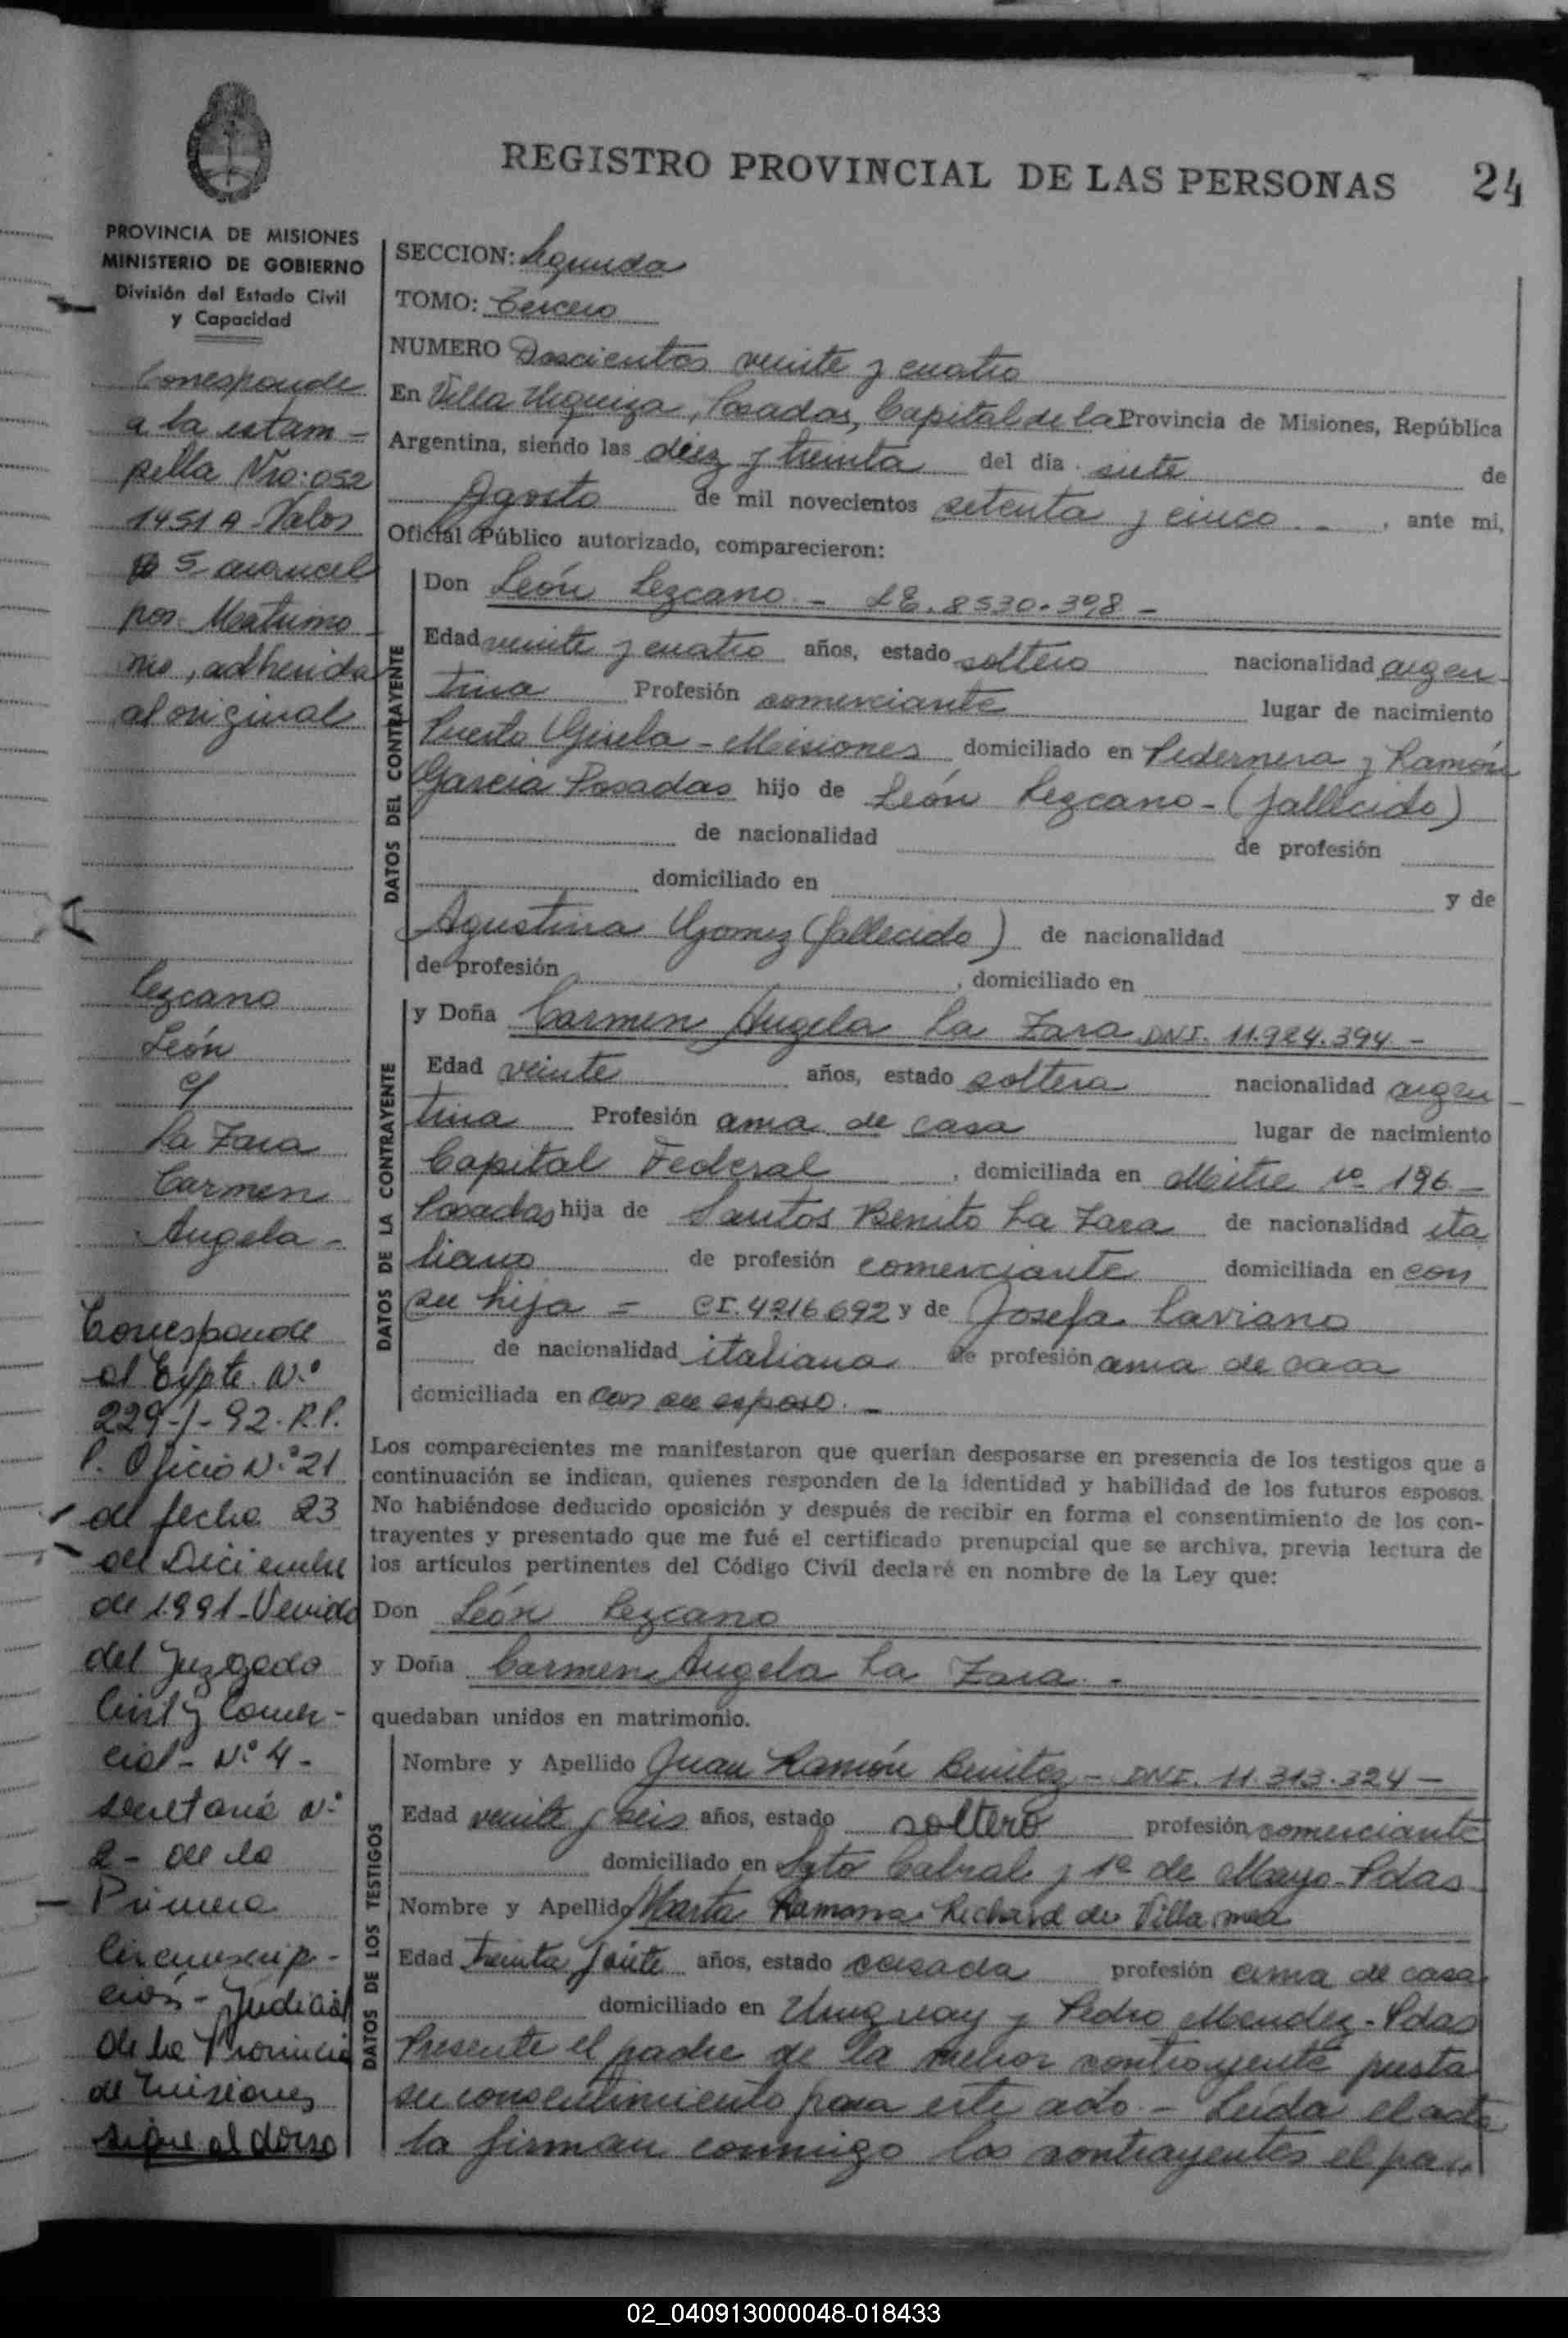 REGISTRO PROVINCIAL DE LAS PERSONAS 24
PROVINCIA DE MISIONES
MINISTERIO DE GOBIERNO
División del Estado Civil
y Capacidad
Corresponde
a la estam-
pilla Nro: 052
1451 A - Valor
$ 5 arancel
por Matrimo-
nio, adherida
al original
Lezcano
León
c/
La Zara
Carmen
Angela -
Corresponde
al Expte. N.º
229-/-92. R.P.
P. Oficio N.º 21
de fecha 23
de Diciembre
de 1.991 - Venido
del Juzgado
Civil y Comer-
cial - N.º 4 -
secretaria N.º
2 - de la
Primera
Circunscrip-
ción - Judicial
de la Provincia
de Misiones
sigue al dorso
SECCION: Segunda
TOMO: Tercero
NUMERO Doscientos veinte y cuatro
En Villa Urquiza, Posadas, Capital de la Provincia de Misiones, República
Argentina, siendo las diez y treinta del día siete de
Agosto de mil novecientos setenta y cinco - , ante mi,
Oficial Público autorizado, comparecieron:
DATOS DEL CONTRAYENTE
Don León Lezcano - LE. 8530.398 -
Edad veinte y cuatro años, estado soltero nacionalidad argen-
tina Profesión comerciante lugar de nacimiento
Puerto Gisela - Misiones domiciliado en Pedernera y Ramón
Garcia Posadas hijo de León Lezcano - (fallecido)
de nacionalidad de profesión
domiciliado en y de
Agustina Gomez (fallecido) de nacionalidad
de profesión , domiciliado en
DATOS DE LA CONTRAYENTE
y Doña Carmen Angela La Zara DNI. 11.924.394 -
Edad veinte años, estado soltera nacionalidad argen-
tina Profesión ama de casa lugar de nacimiento
Capital Federal , domiciliada en Mitre nº 196 -
Posadas hija de Santos Benito La Zara de nacionalidad ita
liano de profesión comerciante domiciliada en con
su hija = CI. 4216692 y de Josefa Laviano
de nacionalidad italiana de profesión ama de casa
domiciliada en con su esposo. -
Los comparecientes me manifestaron que querían desposarse en presencia de los testigos que a
continuación se indican, quienes responden de la identidad y habilidad de los futuros esposos.
No habiéndose deducido oposición y después de recibir en forma el consentimiento de los con-
trayentes y presentado que me fué el certificado prenupcial que se archiva, previa lectura de
los artículos pertinentes del Código Civil declaré en nombre de la Ley que:
Don León Lezcano
y Doña Carmen Angela La Zara -
quedaban unidos en matrimonio.
DATOS DE LOS TESTIGOS
Nombre y Apellido Juan Ramón Benitez - DNI. 11.313.324 -
Edad veinte y seis años, estado soltero profesión comerciante
domiciliado en Sgto Cabral y 1º de Mayo - Pdas
Nombre y Apellido Marta Ramona Richard de Villa
Edad treinta y siete años, estado casada profesión ama de casa
domiciliado en Uruguay y Pedro Mendez - Pdas
Presente el padre de la menor contrayente presta
su consentimiento para este acto. - Leída el acta
la firman conmigo los contrayentes el pa
02_040913000048-018433